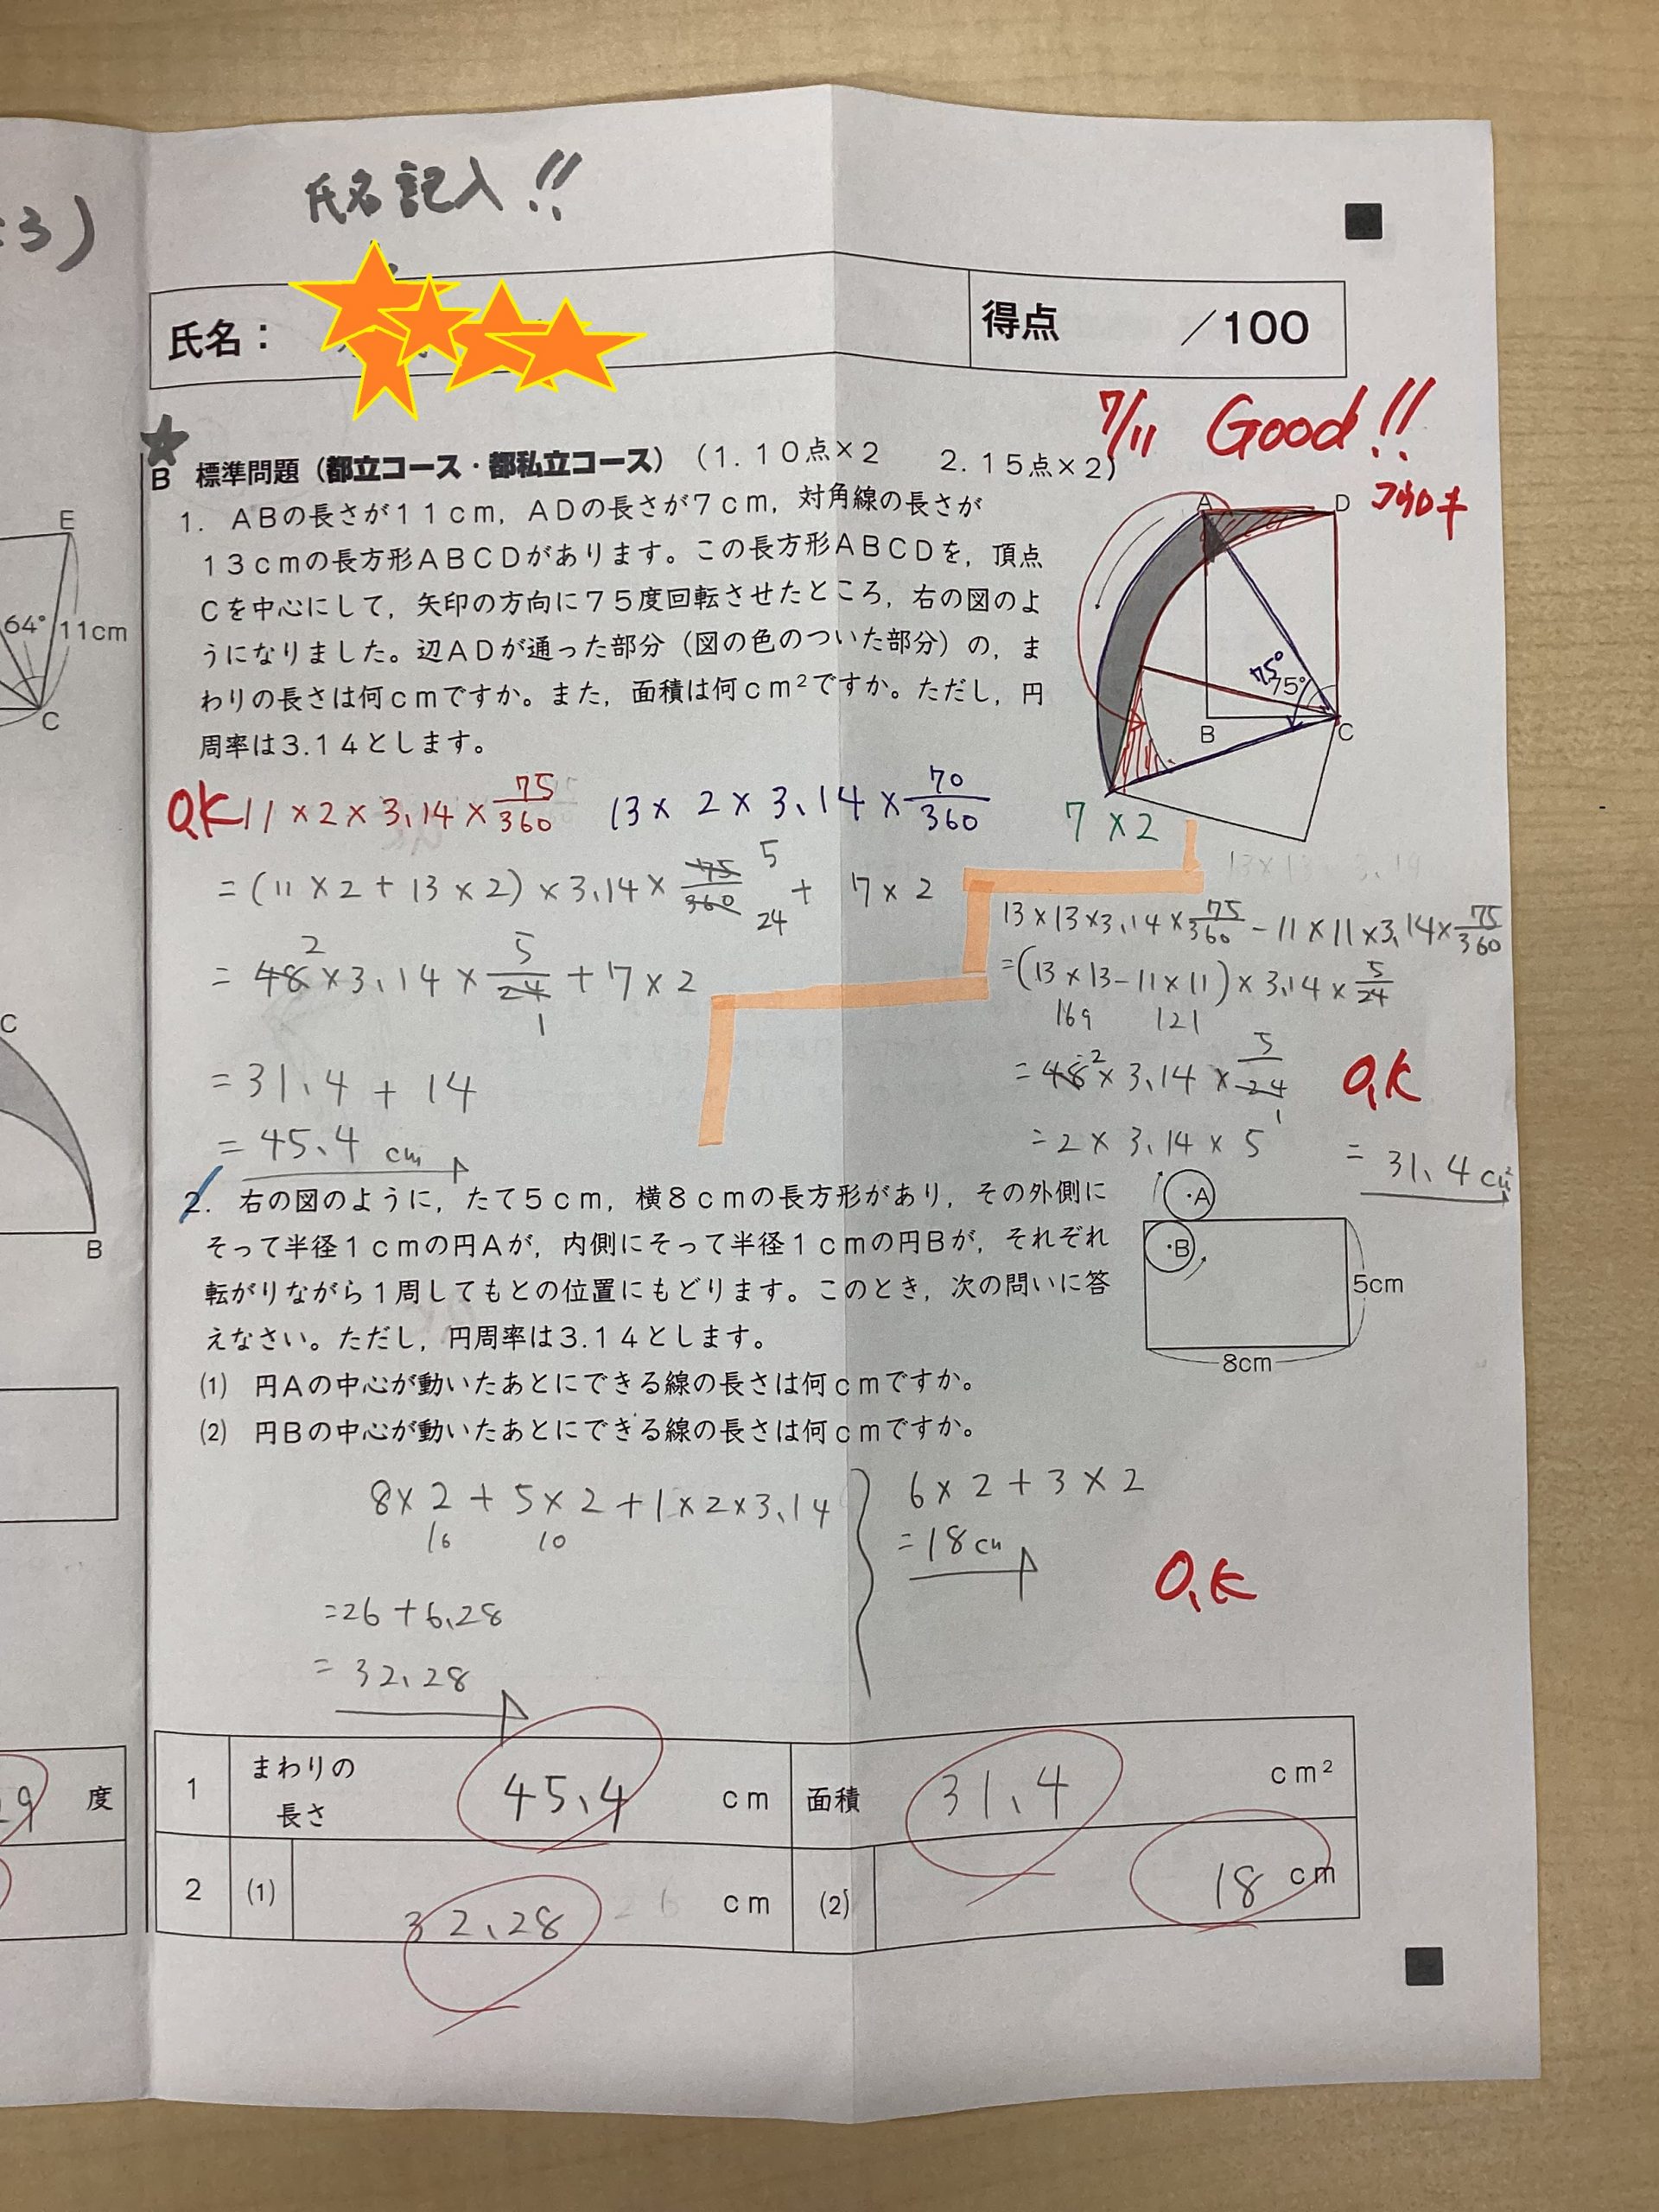 :3)
氏名記入!!
氏名:
得点 /100
7/11 Good!!
B 標準問題(都立コース・都私立コース)(1.10点×2 2.15点×2)
1. ABの長さが11cm,ADの長さが7cm,対角線の長さが
13cmの長方形ABCDがあります。この長方形ABCDを,頂点
Cを中心にして,矢印の方向に75度回転させたところ,右の図のよ
うになりました。辺ADが通った部分(図の色のついた部分)の,ま
わりの長さは何cmですか。また,面積は何cm²ですか。ただし,円
周率は3.14とします。
A
D
75°
75°
B
C
E
64°
11cm
C
O,K 11×2×3.14×75/360 13×2×3.14×70/360 7×2
=(11×2+13×2)×3.14×75/360 5/24 + 7×2
=48 2 ×3.14×5/24 1 +7×2
=31.4+14
=45.4 cm
13×13×3.14×75/360-11×11×3.14×75/360
=(13×13-11×11)×3.14×5/24
169 121
=48 2 ×3.14×5/24 1
O,K
=2×3.14×5
=31.4cm²
C
B
2. 右の図のように,たて5cm,横8cmの長方形があり,その外側に
そって半径1cmの円Aが,内側にそって半径1cmの円Bが,それぞれ
転がりながら1周してもとの位置にもどります。このとき,次の問いに答
えなさい。ただし,円周率は3.14とします。
⑴ 円Aの中心が動いたあとにできる線の長さは何cmですか。
⑵ 円Bの中心が動いたあとにできる線の長さは何cmですか。
A
B
5cm
8cm
8×2+5×2+1×2×3.14
16 10
=26+6.28
=32.28
6×2+3×2
=18cm
O,K
1 まわりの長さ 45.4 cm 面積 31.4 cm²
2 ⑴ 32.28 cm ⑵ 18 cm
9 度